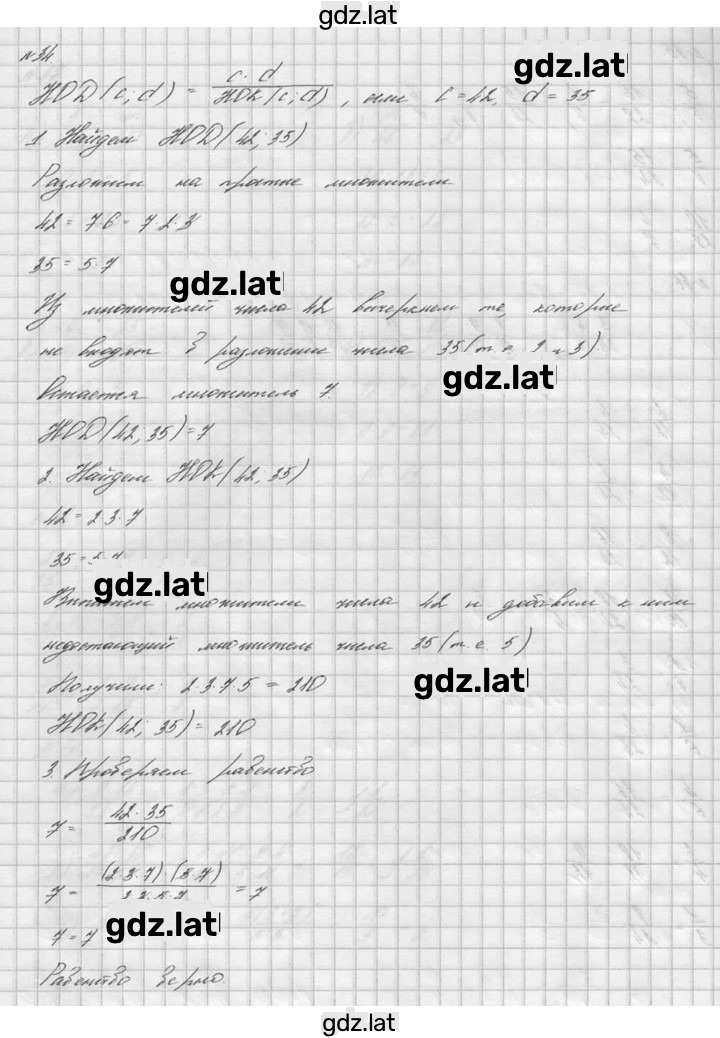 gdz.lat
n 34
gdz.lat
НОД(c; d) = c·d / НОК(c; d), если c = 42, d = 35
1 Найдем НОД(42; 35)
Разложим на простые множители
42 = 7·6 = 7·2·3
35 = 5·7
gdz.lat
Из множителей числа 42 вычеркнем те, которые
не входят в разложение числа 35 (т.е. 2 и 3).
gdz.lat
Остается множитель 7.
НОД(42; 35) = 7
2. Найдем НОК(42, 35)
42 = 2·3·7
35 = 5·7
gdz.lat
Выпишем множители числа 42 и добавим к ним
недостающий множитель числа 35 (т.е. 5)
Получим: 2·3·7·5 = 210
gdz.lat
НОК(42; 35) = 210
3. Проверяем равенство
7 = 42·35 / 210
7 = (2·3·7)·(5·7) / 2·3·5·7 = 7
7 = 7
gdz.lat
Равенство верно.
gdz.lat